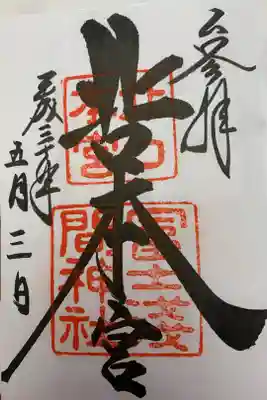 参拝
北口本宮
平成三十年
五月三日
北口
本宮
冨士浅
間神社